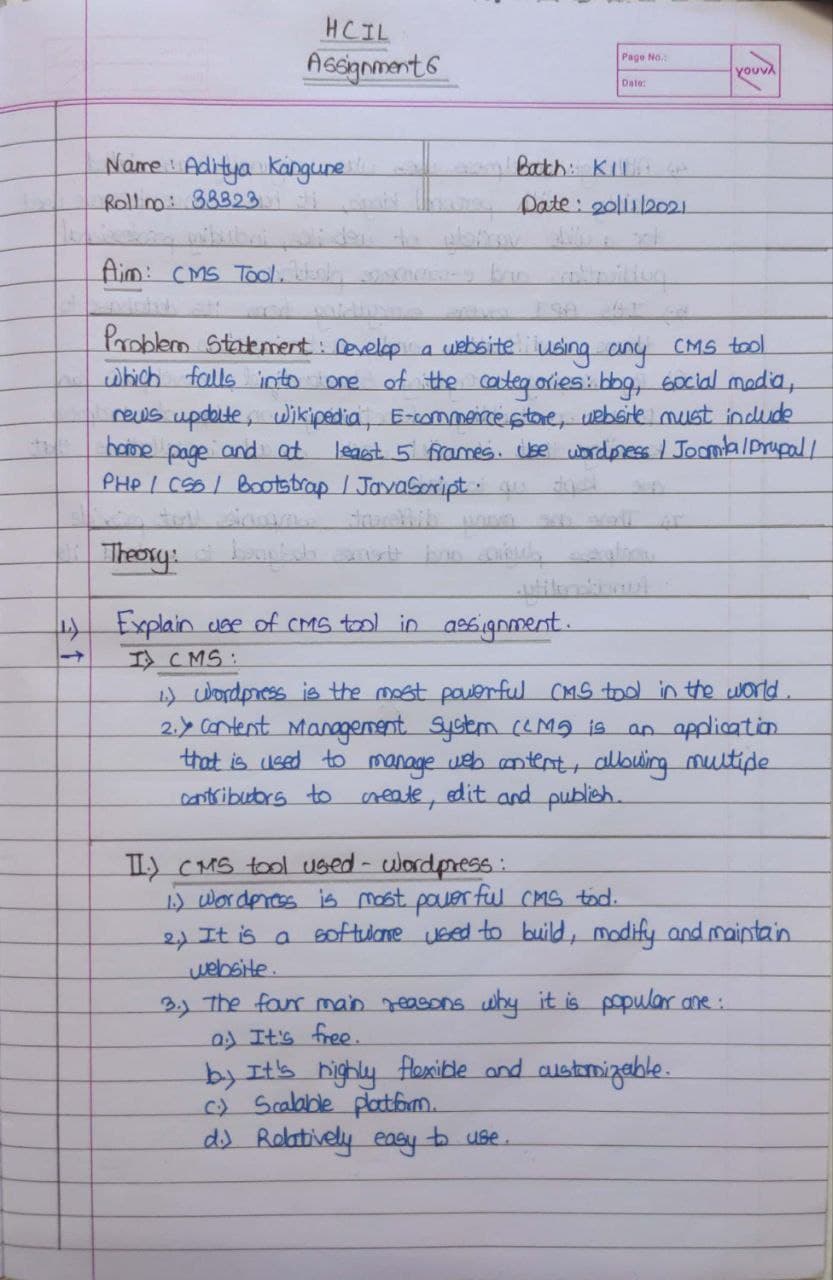 HCIL
Assignment 6
Page No.:
Date:
youva
Name: Aditya Kangune
Batch: K11
Roll no: 33323
Date: 20/11/2021
Aim: CMS Tool.
Problem Statement: Develop a website using any CMS tool
which falls into one of the categories: blog, social media,
news update, Wikipedia, E-commerce store, website must include
home page and at least 5 frames. Use wordpress / Joomla/Drupal/
PHP / CSS / Bootstrap / JavaScript.
Theory:
1.) Explain use of CMS tool in assignment.
→ I) CMS:
1.) Wordpress is the most powerful CMS tool in the world.
2.) Content Management System (CMS) is an application
that is used to manage web content, allowing multiple
contributors to create, edit and publish.
II.) CMS tool used - wordpress:
1.) Wordpress is most powerful CMS tool.
2.) It is a software used to build, modify and maintain
website.
3.) The four main reasons why it is popular are:
a.) It's free.
b.) It's highly flexible and customizable.
c.) Scalable platform.
d.) Relatively easy to use.